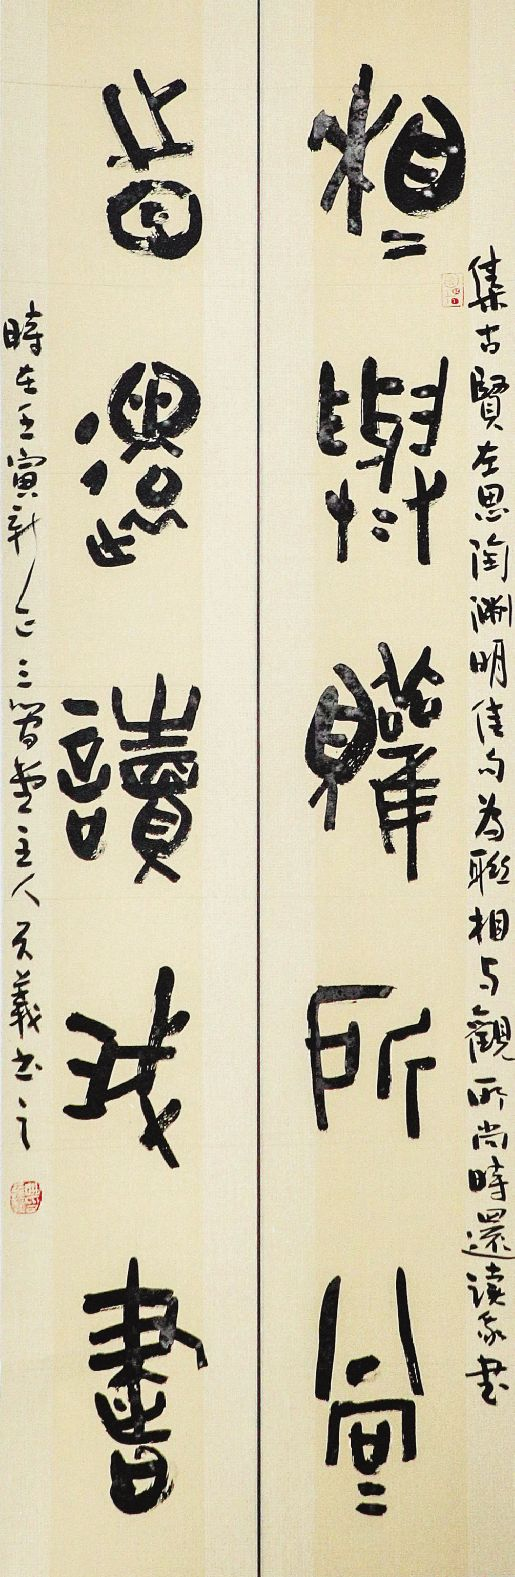 集古賢左思陶淵明佳句為聯相與觀所尚時還讀我書
相與觀所尚
時還讀我書
時在壬寅新正三堂主人義書之